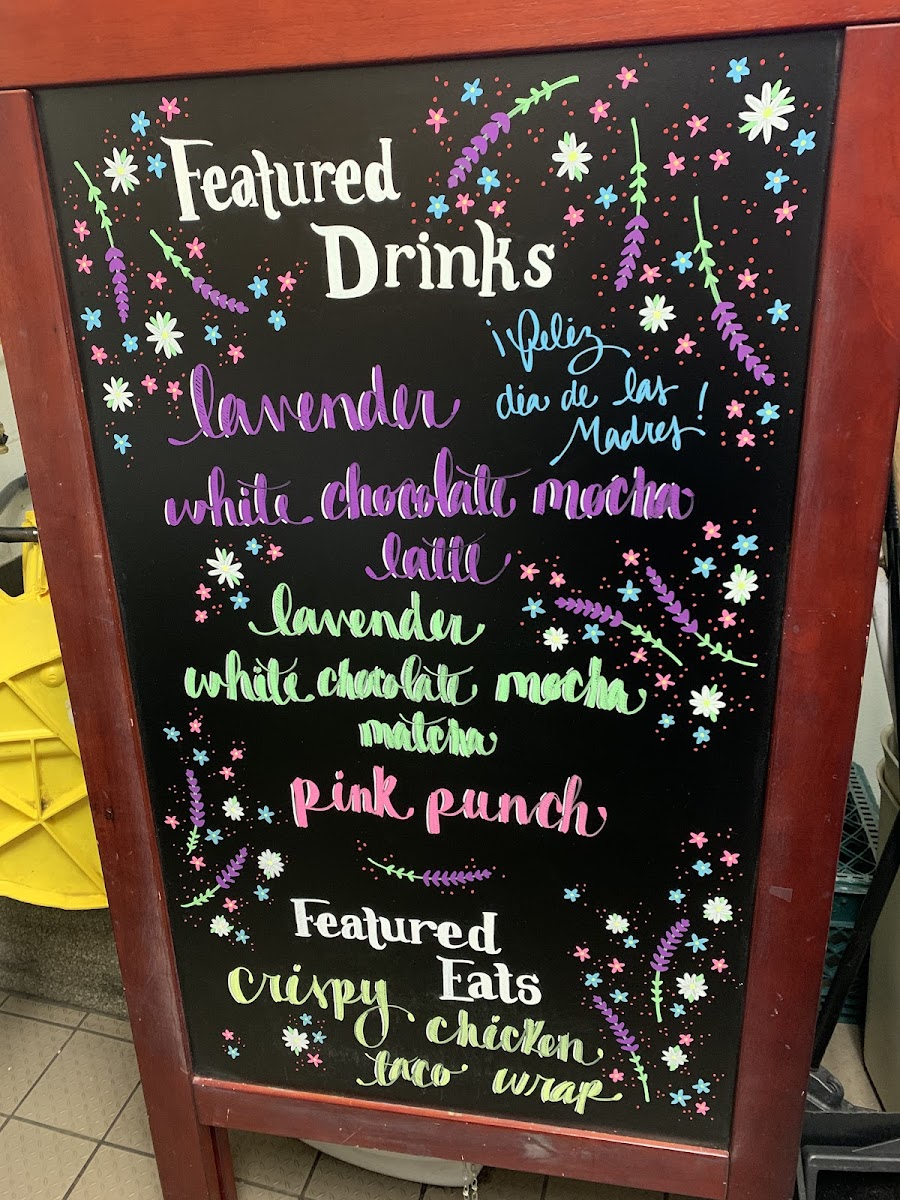 Featured
Drinks
¡Feliz
día de las
Madres!
lavender
white chocolate mocha
latte
lavender
white chocolate mocha
matcha
pink punch
Featured
Eats
crispy chicken
taco wrap